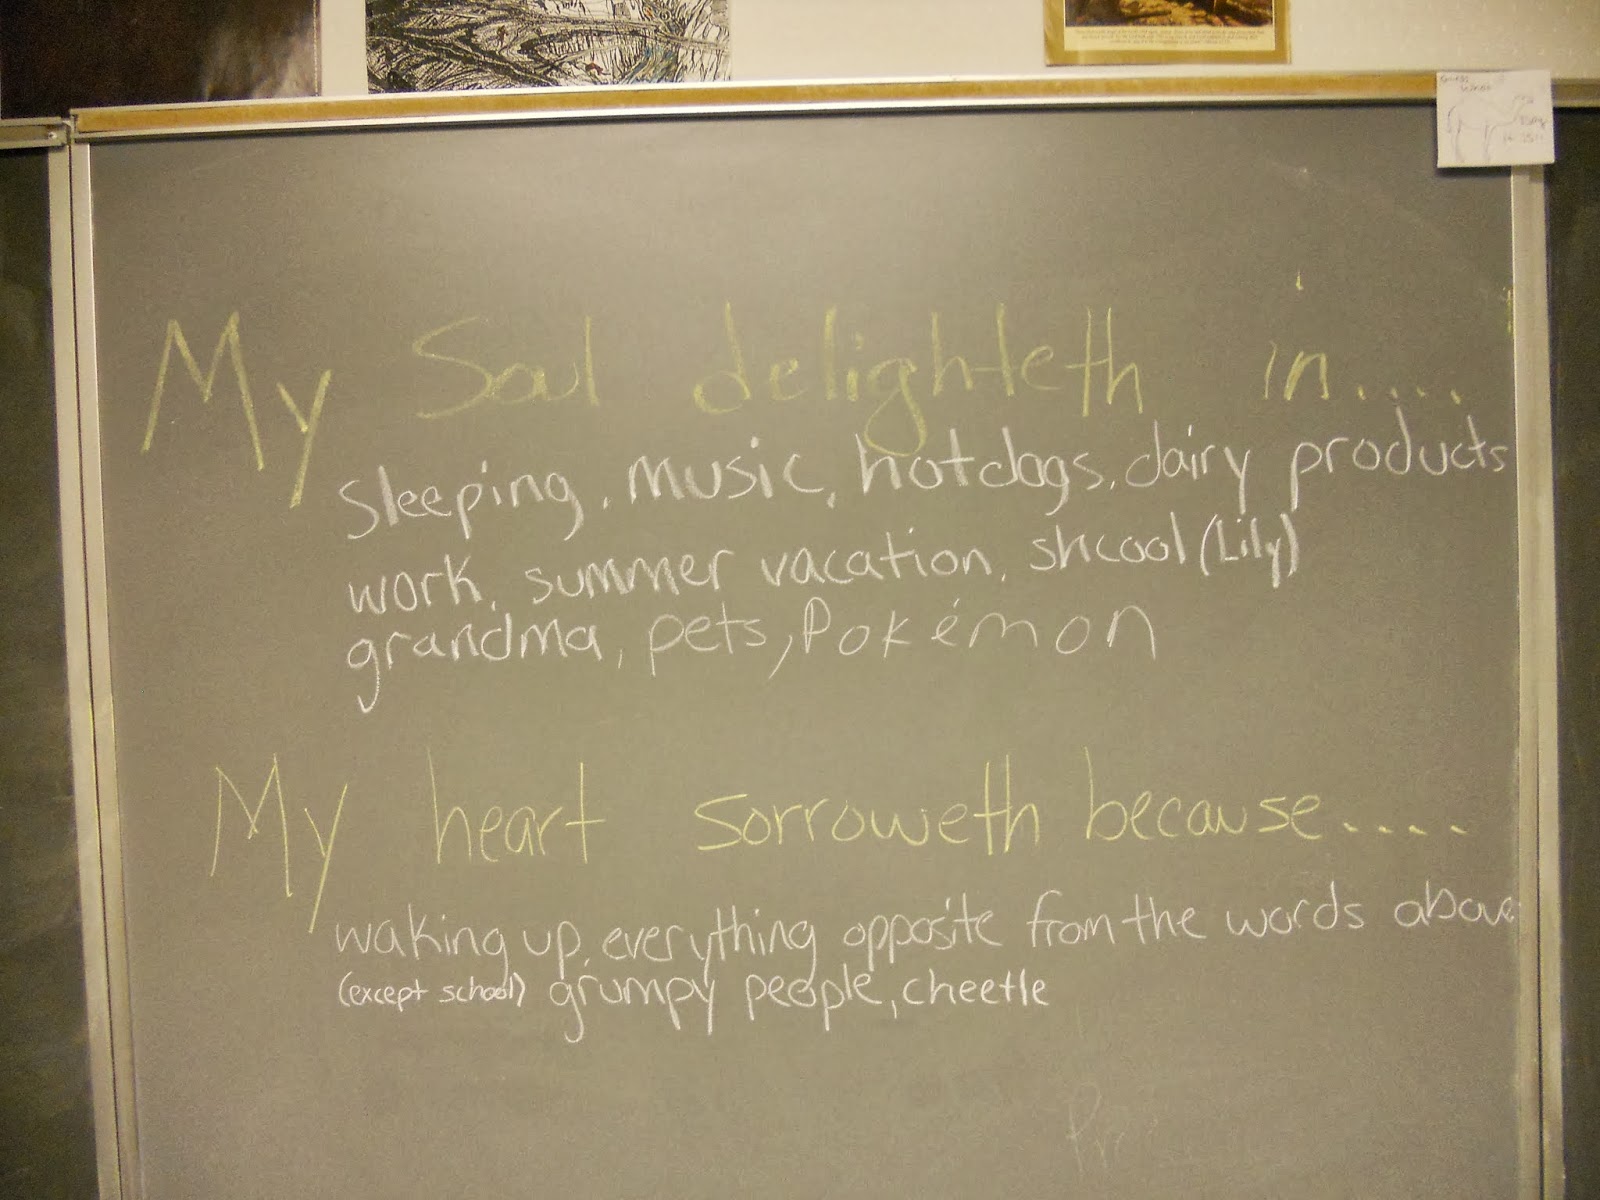 My Soul delighteth in....
Sleeping, music, hotdogs, dairy products
work, summer vacation, shcool (Lily)
grandma, pets, Pokémon
My heart sorroweth because....
waking up, everything opposite from the words above
(except school) grumpy people, cheetle